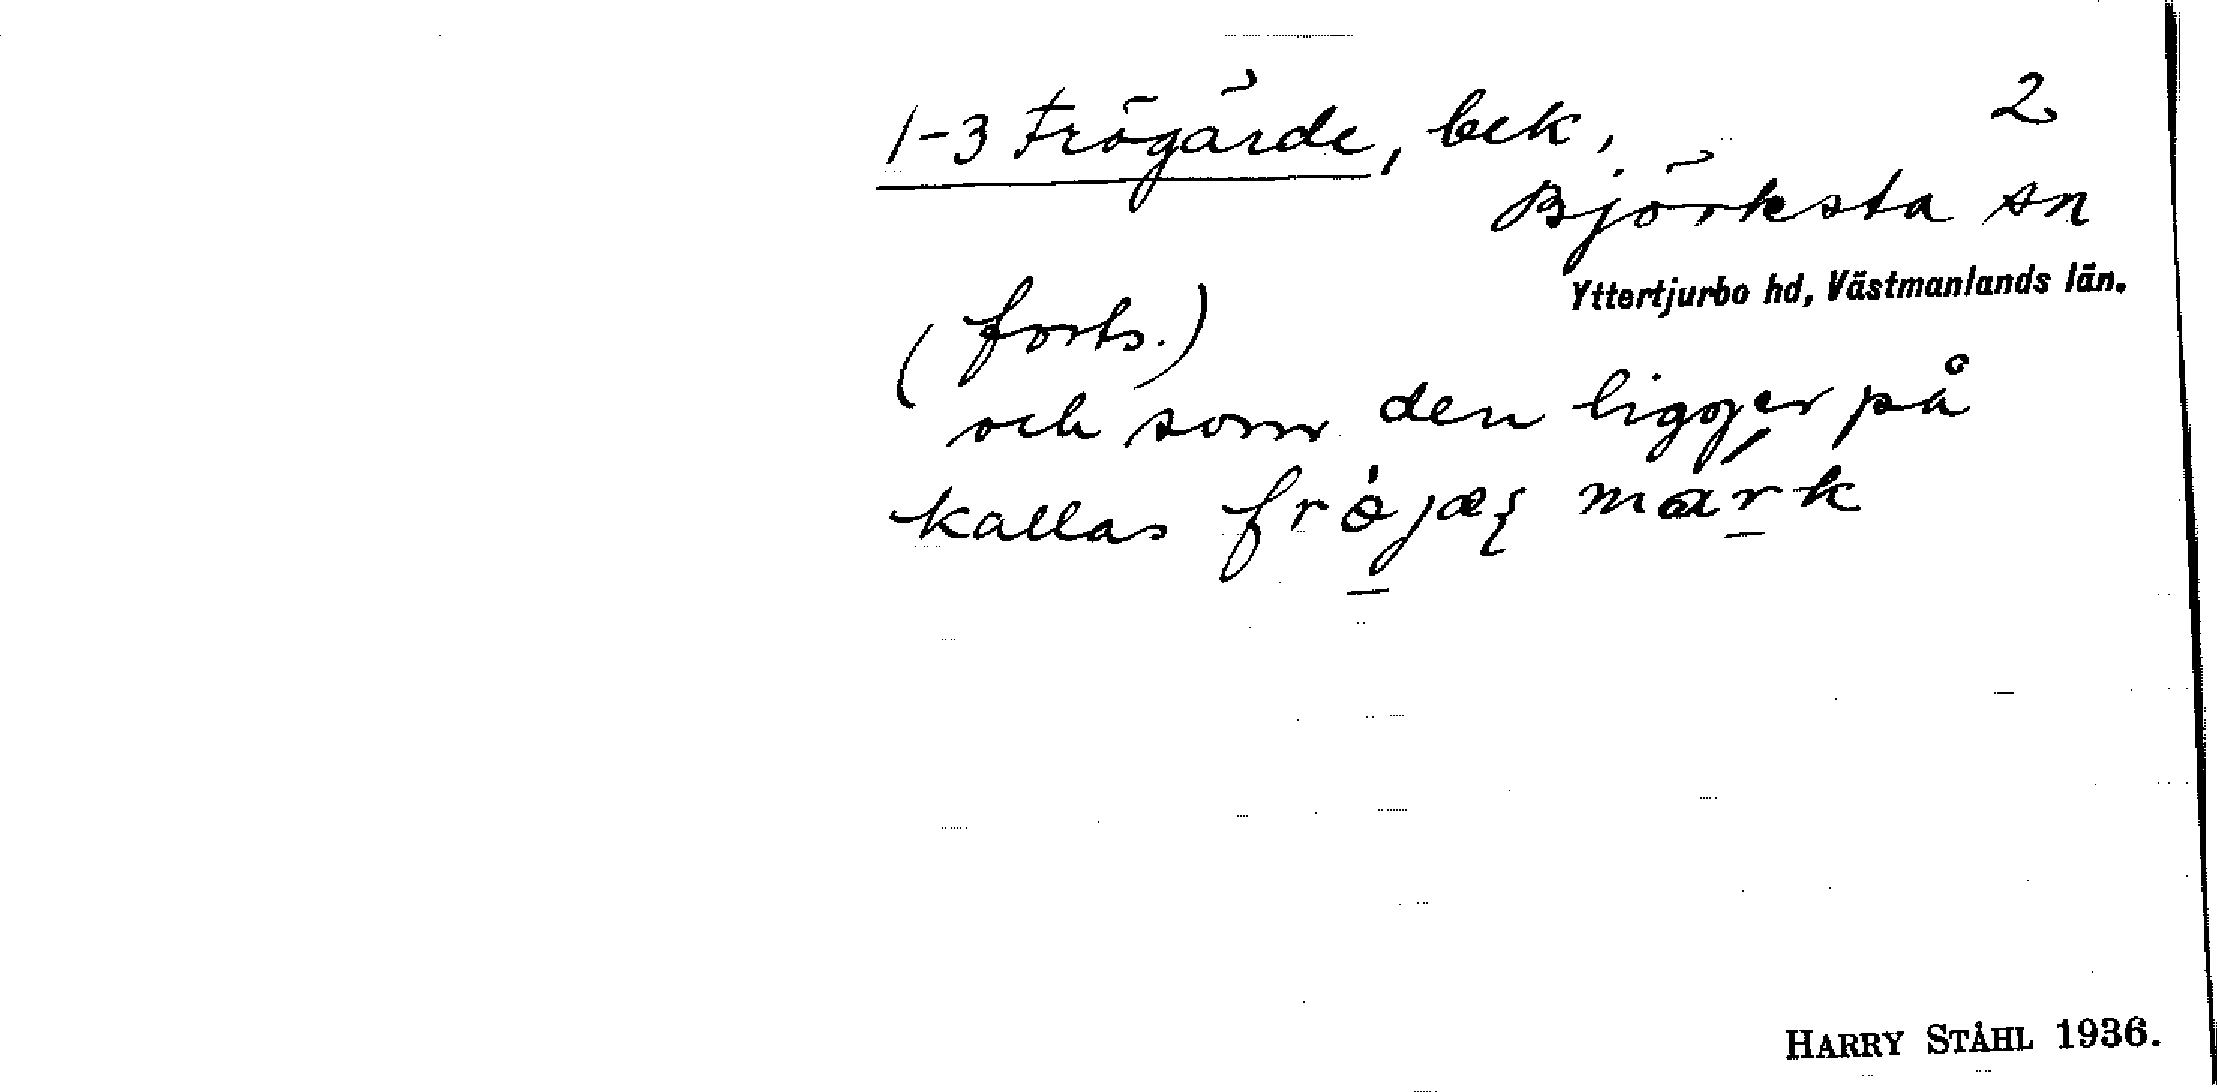 1-3 Frögärde, bek,
2
Björksta sn
Yttertjurbo hd, Västmanlands län.
(forts.)
och som den ligger på
kallas
HARRY STÅHL 1936.